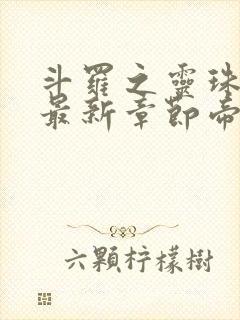 斗羅之靈珠
最新章節帝
六顆柠檬樹